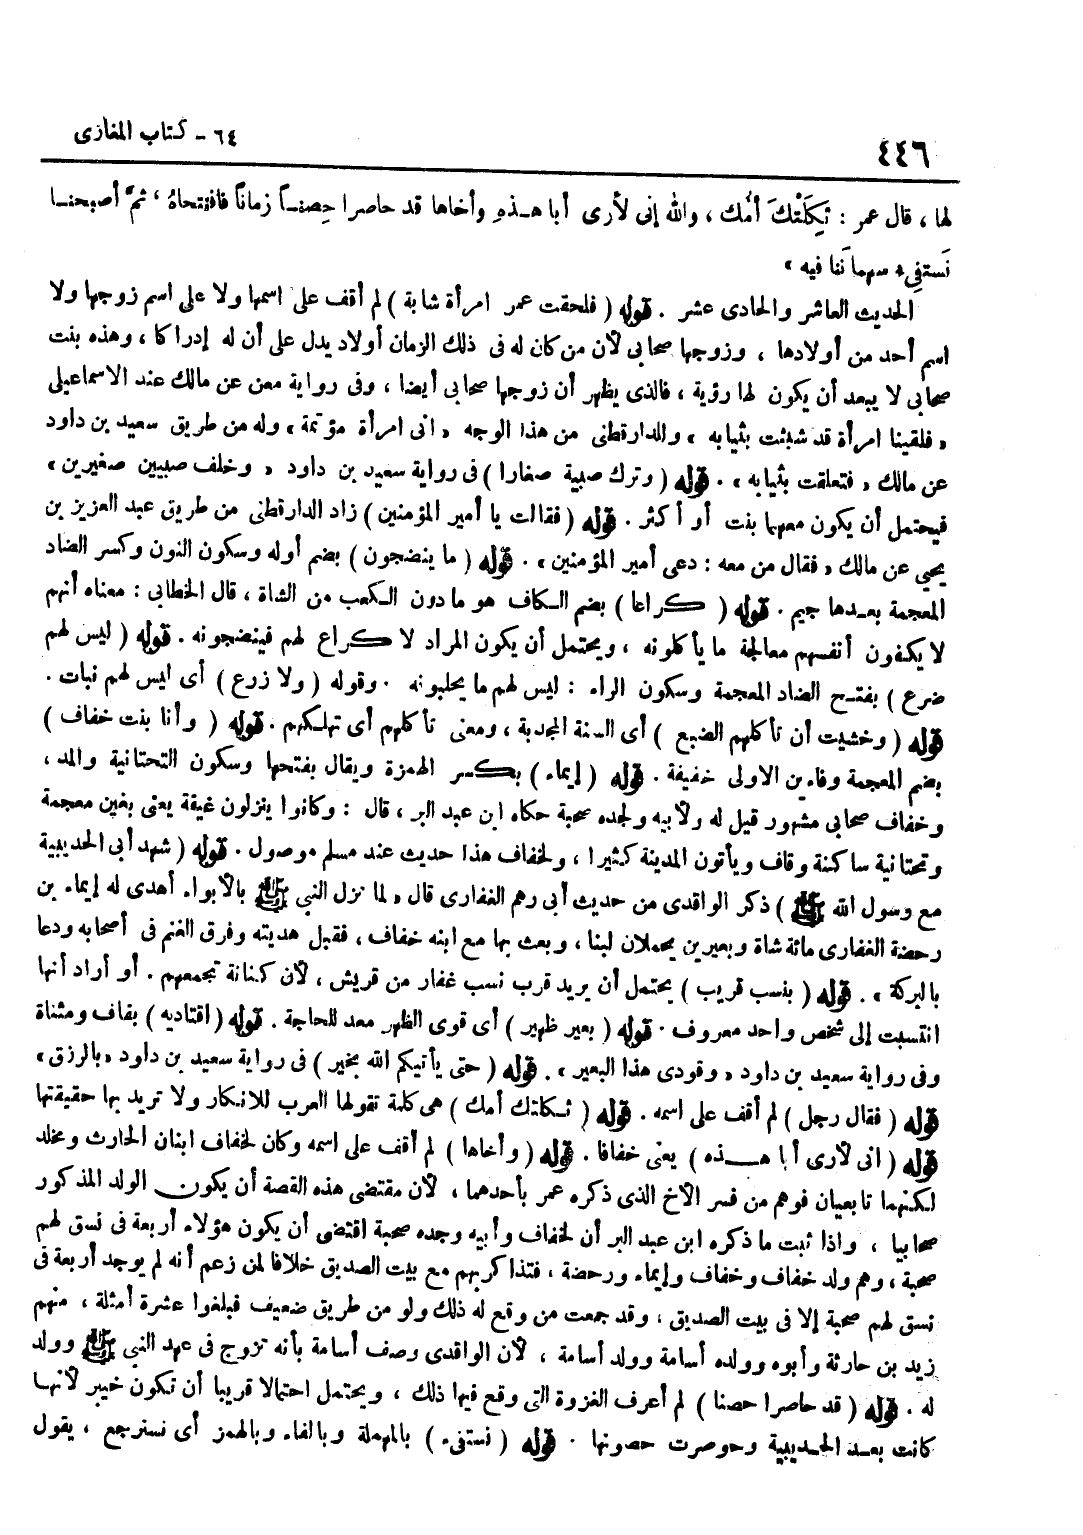 ٤٤٦
٦٤ - كتاب المغازى
لها ، قال عمر : ثَكِلَتْكَ أمك ، والله إنى لأرى أبا هـذهِ وأخاها قد حاصرا حِصنـاً زماناً فافتتحاهُ ، ثمَّ أصبحنـا
نَستفىء سهمانَنا فيه »
الحديث العاشر والحادى عشر . قوله ( فلحقت عمر امرأة شابة ) لم أقف على اسمها ولا على اسم زوجها ولا
اسم أحد من أولادها ، وزوجها صحابى لأن من كان له فى ذلك الزمان أولاد يدل على أن له إدراكا ، وهذه بنت
صحابى لا يبعد أن يكون لها رؤية ، فالذى يظهر أن زوجها صحابى أيضا ، وفى رواية معن عن مالك عند الاسماعيلى
« فلقينا امرأة قد شبثت بثيابه » وللدارقطنى من هذا الوجه « انى امرأة مؤتمة » وله من طريق سعيد بن داود
عن مالك « فتعلقت بثيابه » . قوله ( وترك صبية صغارا ) فى رواية سعيد بن داود « وخلف صبيين صغيرين »
فيحتمل أن يكون معهما بنت أو أكثر . قوله ( فقالت يا أمير المؤمنين ) زاد الدارقطنى من طريق عبد العزيز بن
يحيى عن مالك « فقال من معه : دعى أمير المؤمنين » . قوله ( ما ينضجون ) بضم أوله وسكون النون وكسر الضاد
المعجمة بعـدها جيم . قوله ( كراعا ) بضم الـكاف هو ما دون الـكعب من الشاة ، قال الخطابى : معناه أنهم
لا يكفون أنفسهم معالجة ما يأكلونه ، ويحتمل أن يكون المراد لا كراع لهم فينضجونه . قوله ( ليس لهم
ضرع ) بفتـح الضاد المعجمة وسكون الراء : ليس لهم ما يحلبونه . وقوله ( ولا زرع ) أى ليس لهم نبات .
قوله ( وخشيت أن تأكلهم الضبع ) أى السنة المجدبة ، ومعنى تأكلهم أى تهلـكهم . قوله ( وأنا بنت خفاف )
بضم المعجمة وفاءين الاولى خفيفة . قوله ( إيماء ) بكسر الهمزة ويقال بفتحها وسكون التحتانية والمد ،
وخفاف صحابى مشهور قيل له ولأبيه ولجده صحبة حكاه ابن عبد البر ، قال : وكانوا ينزلون غيقة يعنى بغين معجمة
وتحتانية ساكنة وقاف ويأتون المدينة كثيرا ، ولخفاف هذا حديث عند مسلم موصول . قوله ( شهد أبى الحديبية
مع رسول الله ﷺ ) ذكر الواقدى من حديث أبى رهم الغفارى قال « لما نزل النبى ﷺ بالأبواء أهدى له إيماء بن
رحضة الغفارى مائة شاة وبعيرين يحملان لبنا ، وبعث بها مع ابنه خفاف ، فقبل هديته وفرق الغنم فى أصحابه ودعا
بالبركة » . قوله ( بنسب قريب ) يحتمل أن يريد قرب نسب غفار من قريش ، لأن كنانة تجمعهم . أو أراد أنها
انتسبت إلى شخص واحد معروف . قوله ( بعير ظهير ) أى قوى الظهر معد للحاجة . قوله ( اقتاديه ) بقاف ومثناة
وفى رواية سعيد بن داود « وقودى هذا البعير » . قوله ( حتى يأتيكم الله بخير ) فى رواية سعيد بن داود « بالرزق »
قوله ( فقال رجل ) لم أقف على اسمه . قوله ( ثـكلتك أمك ) هى كلمة تقولها العرب للانكار ولا تريد بها حقيقتها
قوله ( انى لأرى أبا هـذه ) يعنى خفافا . قوله ( وأخاها ) لم أقف على اسمه وكان لخفاف ابنان الحارث ومخلد
لكنهما تابعيان فوهم من فسر الأخ الذى ذكره عمر بأحدهما ، لأن مقتضى هذه القصة أن يكون الولد المذكور
صحابيا ، واذا ثبت ما ذكره ابن عبد البر أن لخفاف وأبيه وجده صحبة اقتضى أن يكون هؤلاء أربعة فى نسق لهم
صحبة ، وهم ولد خفاف وخفاف وإيماء ورحضة ، فتذاكر بهم مع بيت الصديق خلافا لمن زعم أنه لم يوجد أربعة فى
نسق لهم صحبة إلا فى بيت الصديق ، وقد جمعت من وقع له ذلك ولو من طريق ضعيف فبلغوا عشرة أمثلة ، منهم
زيد بن حارثة وأبوه وولده أسامة وولد أسامة ، لأن الواقدى وصف أسامة بأنه تزوج فى عهد النبى ﷺ وولد
له . قوله ( قد حاصرا حصنا ) لم أعرف الغزوة التى وقع فيها ذلك ، ويحتمل احتمالا قريبا أن تكون خيبر لأنهـا
كانت بعـد الحـديبية وحوصرت حصونها . قوله ( نستفىء ) بالمهملة وبالفاء وبالهمز أى نسترجع ، يقول